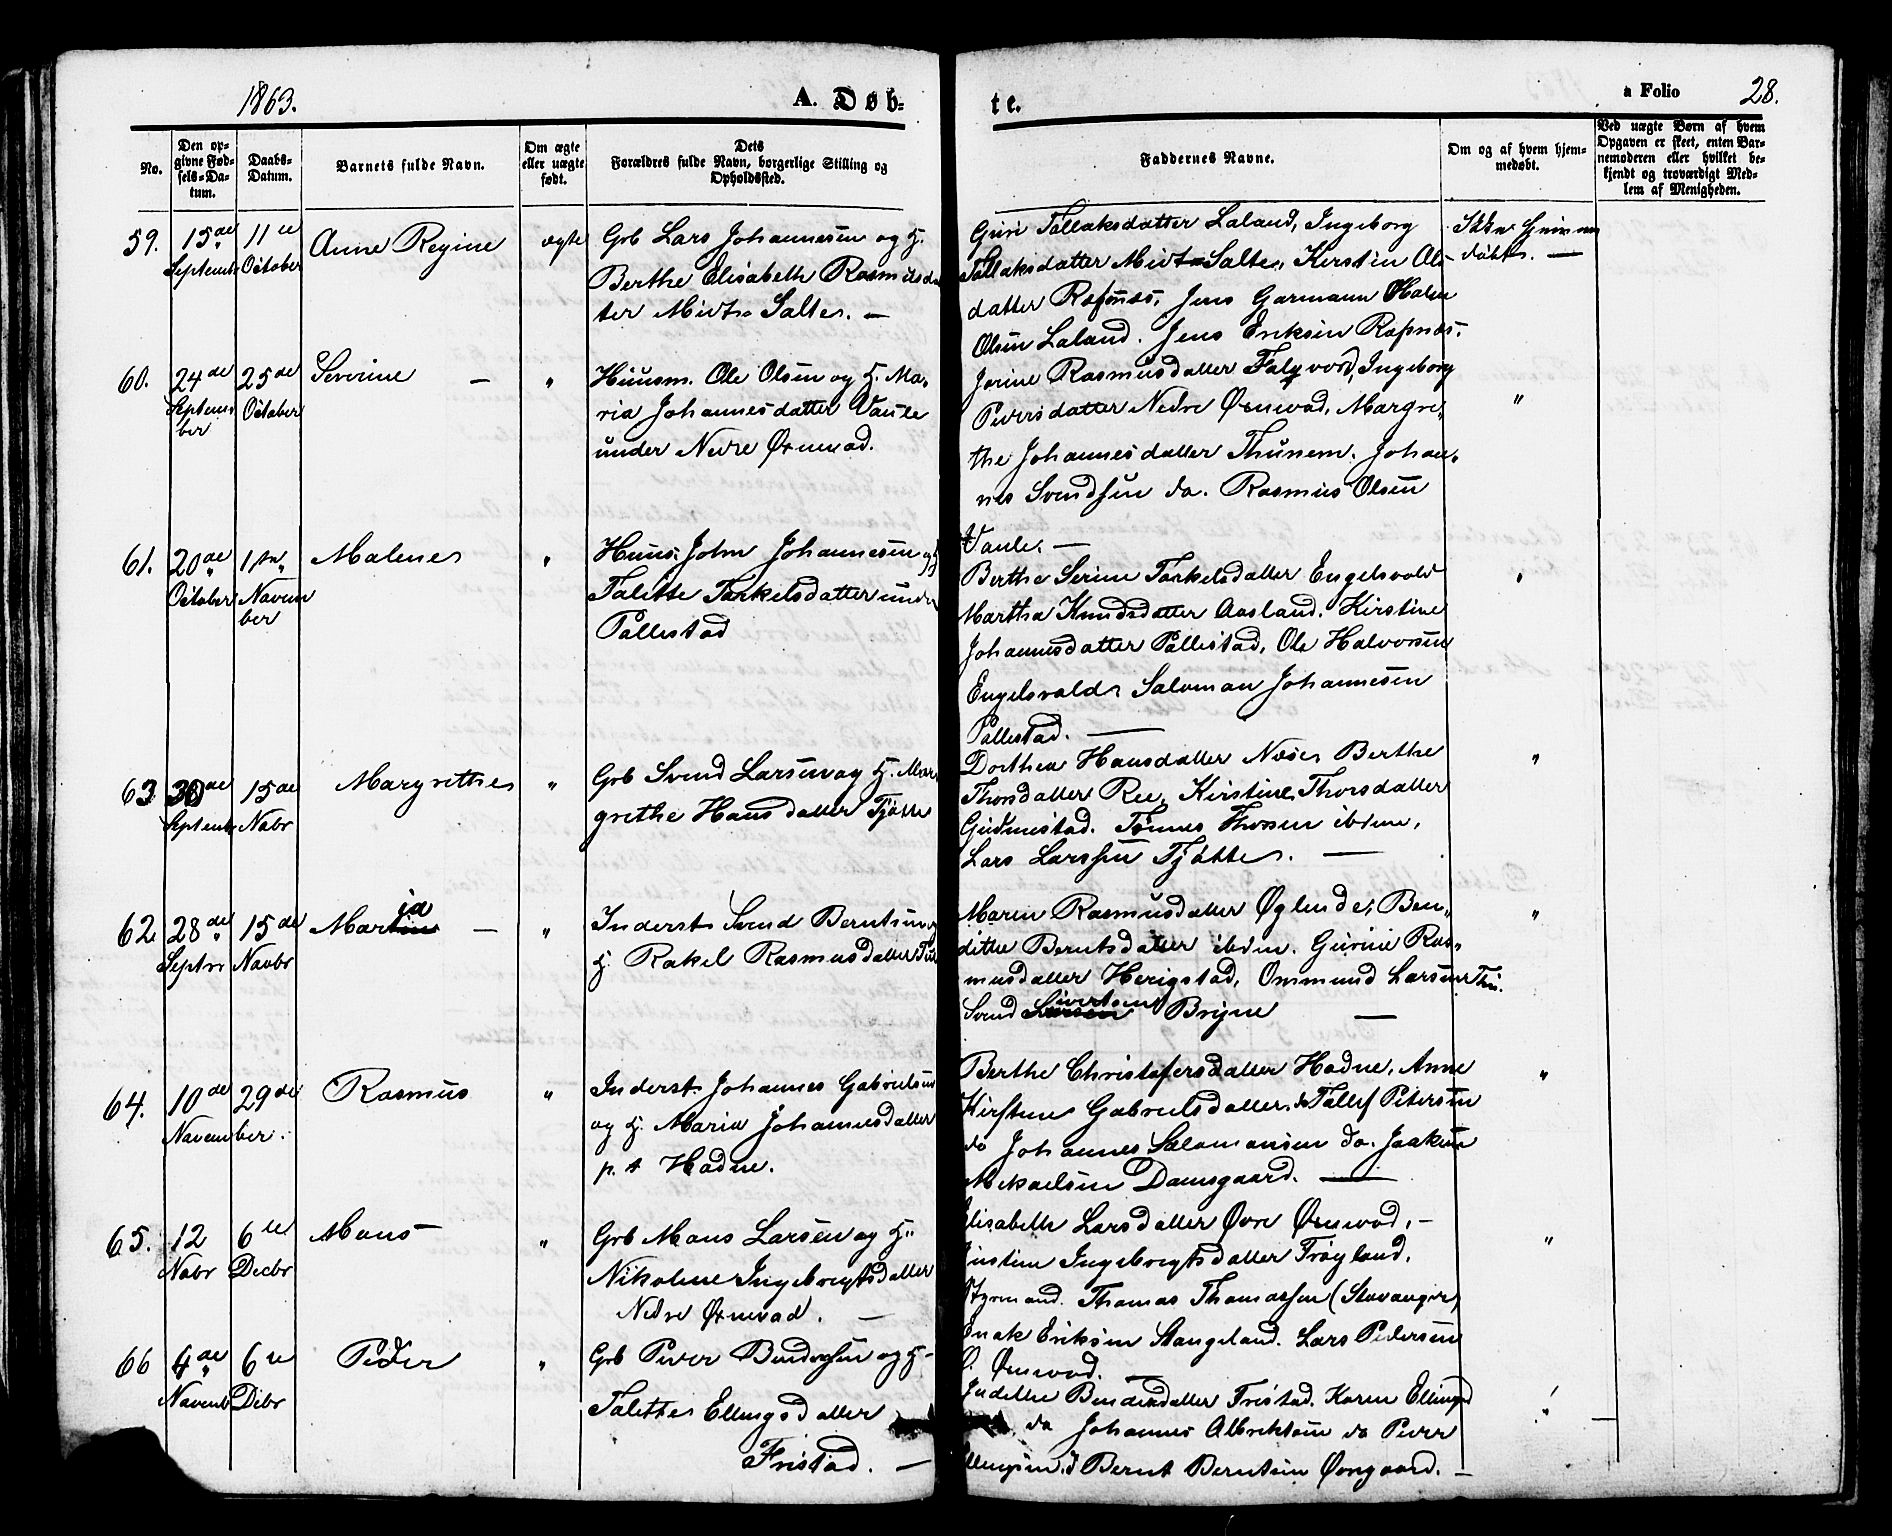 1863.
A. Døb-
te.
a Folio 28.
No.
Den op-
givne Fød-
sels-Da-
tum.
Daabs-
Datum.
Barnets fulde Navn.
Om ægte
eller uægte
født.
Dets
Forældres fulde Navn, borgerlige Stilling og
Opholdssted.
Faddernes Navne.
Om og af hvem hjem-
medøbt.
Ved uægte Børn af hvem
Opgaven er skeet, enten Bar-
nemoderen eller hvilket be-
kjendt og troværdigt Med-
lem af Menigheden.
59.
15de
Septembr
11te
October
Anne Regine
ægte
Grb Lars Johannesen og H.
Berthe Elisabeth Rasmusdat
ter Midt Salte. —
Guri Tollaksdatter Laland, Ingeborg
Tollaksdatter Midt Salte, Kirstin Ols-
datter Refsnæs, Jens Garmann
Olsen Laland. Jens Eriksen Refsnæs.
Ikke hjemme
døbt. —
60.
24de
Septem
ber
25de
October
Severine —
"
Huusm. Ole Olsen og H. Ma-
ria Johannesdatter Vaule
under Nedre Øxnevad.
Jorine Rasmusdatter Ingeborg
Pedersdatter Nedre Øxnevad, Margre-
the Johannesdatter Thunem. Johan-
nes Svendsen do. Rasmus Olsen
Vaule. —
"
61.
20de
October
1ste
Novem
ber
Malene
"
Huus. John Johannesen og H
Talette Torkelsdatter under
Pollestad
Berthe Serine Torkelsdatter Engelsvold
Martha Knudsdatter Aasland. Kirstine
Johannesdatter Pollestad, Ole Halvorsen
Engelsvold Salomon Johannesen
Pollestad. —
"
63
30de
Septembr
15de
Nobr
Margrethe
"
Grb Svend Larsen og H. Mar
grethe Hansdatter Tjøtte
Dorthea Hansdatter Næse Berthe
Thorsdatter Ree, Kirstine Thorsdatter
Gudmestad. Tønnes Thorsen ibidem,
Lars Larssen Tjøtte. —
"
62
28de
Septr
15de
Novbr
Maria —
"
Inderst Svend Berntsen og
H. Rakel Rasmusdatter
Maren Rasmusdatter Øglende, Ben-
dithe Berntsdatter ibidem. Gurine Ras-
musdatter Herigstad, Ommund Larsen
Svend Sivertsen Bryne —
"
64.
10de
November.
29de
Rasmus
"
Inderst Johannes Gabrielsen
og H. Maria Johannesdatter
p.t Hodne.
Berthe Christofersdatter Hodne, Anne
Kirstine Gabrielsdatter do Tollef Petersen
do Johannes Salomonsen do. Joakim
Mikaelsen Damsgaard. —
"
65.
12
Nobr
6te
Decbr
Mons
"
Grb Mons Larsen og H.
Nikoline Ingebregtsdatter
Nedre Øxnevad. —
Elisabeth Larsdatter Øvre Øxnevad, —
Justine Ingebregtsdatter Frøyland.
Styrmand. Thomas Thomassen (Stavanger)
Enok Eriksen Stangeland. Lars Pedersen
Ø. Øxnevad. —
"
66
4de
Novenb
6te
Debr
Peder
"
Grb Peder Bendixsen og H-
Talette Ellingsdatter
Fristad. —
Bendixdatter Fristad. Karen Ellingsd
do Johannes Albrektsen do Peder
Ellingsen d Bernt Berntsen Øvregaard. —
"